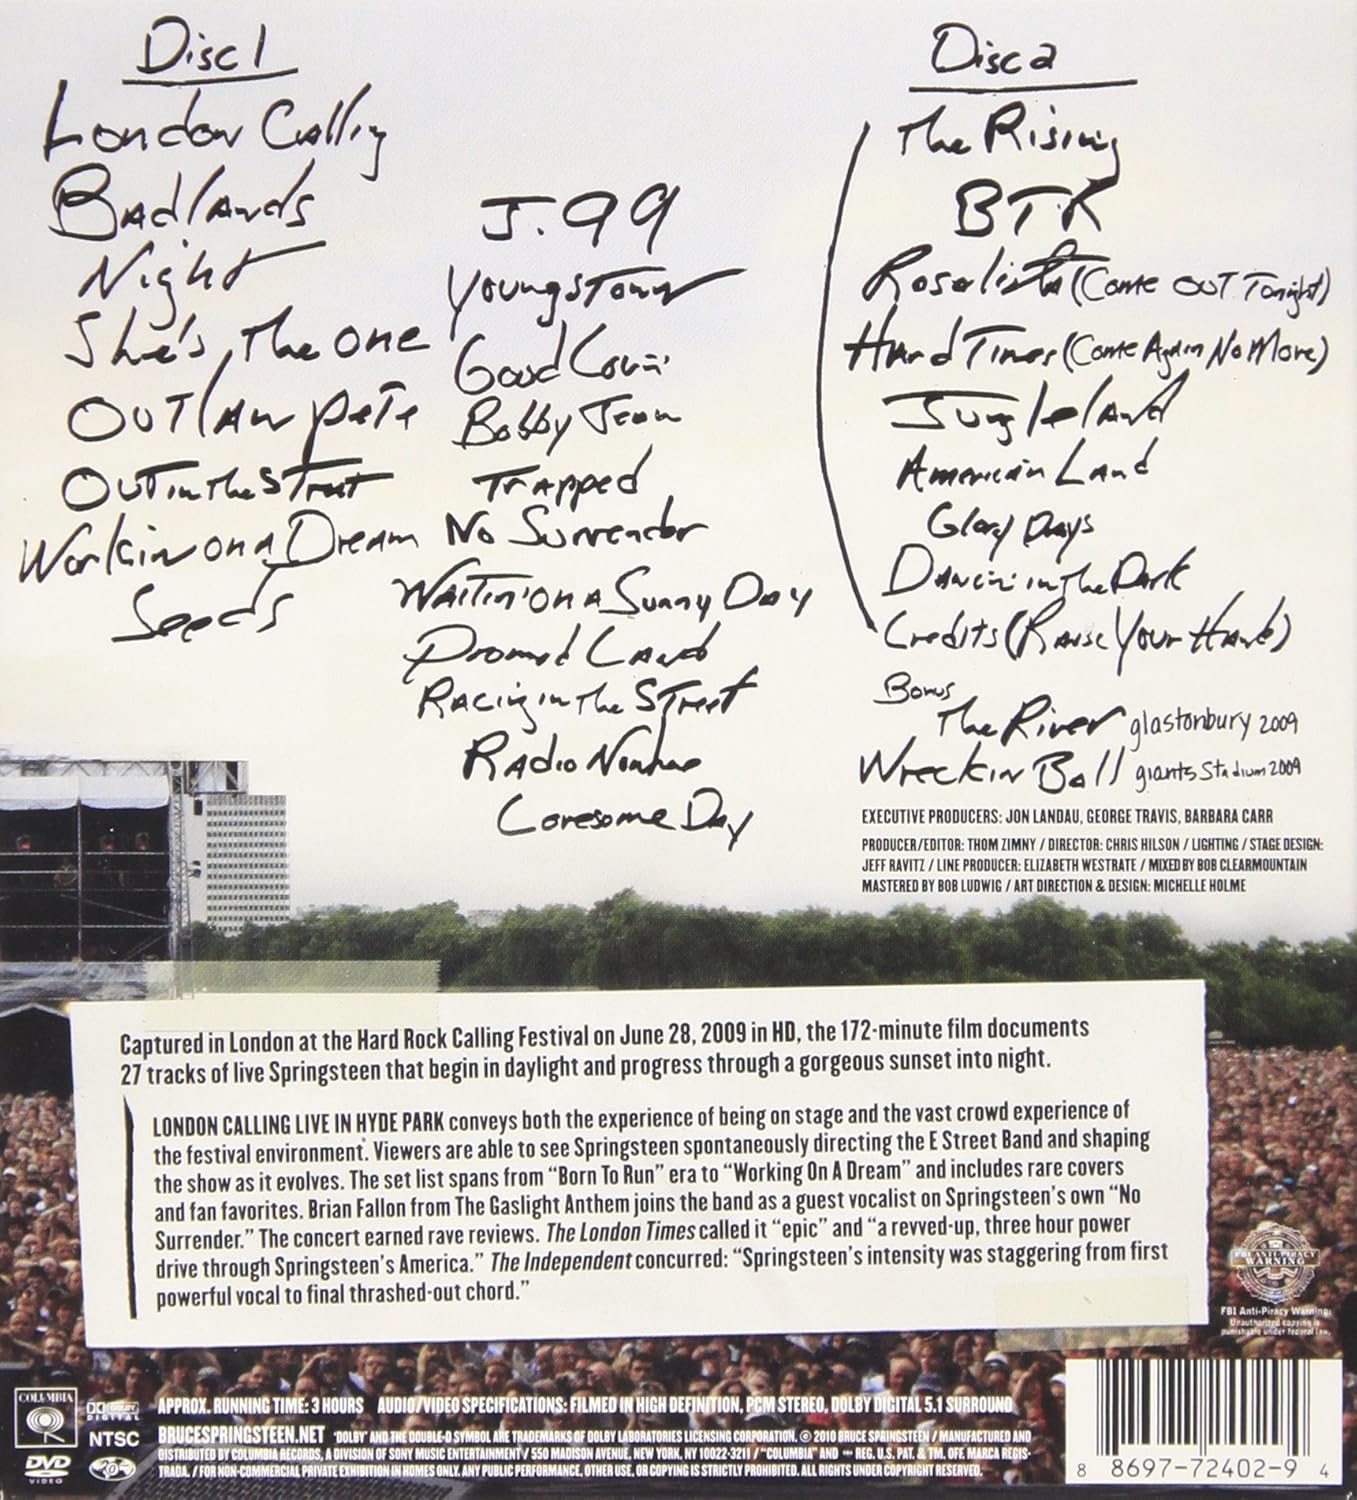 Disc 1
London Calling
Badlands
Night
She's the One
Outlaw Pete
Out in the Street
Workin on a Dream
Seeds
J. 99
Youngstown
Good Lovin'
Bobby Jean
Trapped
No Surrender
Waitin' on a Sunny Day
Promised Land
Racing in the Street
Radio Nowhere
Lonesome Day
Disc 2
The Rising
BTR
Rosalita (Come Out Tonight)
Hard Times (Come Again No More)
Jungleland
American Land
Glory Days
Dancin' in the Dark
Credits (Raise Your Hand)
Bonus
The River glastonbury 2009
Wreckin Ball giants Stadium 2009
EXECUTIVE PRODUCERS: JON LANDAU, GEORGE TRAVIS, BARBARA CARR
PRODUCER/EDITOR: THOM ZIMNY / DIRECTOR: CHRIS HILSON / LIGHTING / STAGE DESIGN:
JEFF RAVITZ / LINE PRODUCER: ELIZABETH WESTRATE / MIXED BY BOB CLEARMOUNTAIN
MASTERED BY BOB LUDWIG / ART DIRECTION & DESIGN: MICHELLE HOLME
Captured in London at the Hard Rock Calling Festival on June 28, 2009 in HD, the 172-minute film documents
27 tracks of live Springsteen that begin in daylight and progress through a gorgeous sunset into night.
LONDON CALLING LIVE IN HYDE PARK conveys both the experience of being on stage and the vast crowd experience of
the festival environment. Viewers are able to see Springsteen spontaneously directing the E Street Band and shaping
the show as it evolves. The set list spans from "Born To Run" era to "Working On A Dream" and includes rare covers
and fan favorites. Brian Fallon from The Gaslight Anthem joins the band as a guest vocalist on Springsteen's own "No
Surrender." The concert earned rave reviews. The London Times called it "epic" and "a revved-up, three hour power
drive through Springsteen's America." The Independent concurred: "Springsteen's intensity was staggering from first
powerful vocal to final thrashed-out chord."
FBI ANTI-PIRACY
WARNING
FBI Anti-Piracy Warning:
Unauthorized copying is
punishable under federal law.
COLUMBIA
DOLBY
DIGITAL
NTSC
DVD
VIDEO
APPROX. RUNNING TIME: 3 HOURS AUDIO/VIDEO SPECIFICATIONS: FILMED IN HIGH DEFINITION, PCM STEREO, DOLBY DIGITAL 5.1 SURROUND
BRUCESPRINGSTEEN.NET "DOLBY" AND THE DOUBLE-D SYMBOL ARE TRADEMARKS OF DOLBY LABORATORIES LICENSING CORPORATION. © 2010 BRUCE SPRINGSTEEN / MANUFACTURED AND
DISTRIBUTED BY COLUMBIA RECORDS, A DIVISION OF SONY MUSIC ENTERTAINMENT / 550 MADISON AVENUE, NEW YORK, NY 10022-3211 / "COLUMBIA" AND REG. U.S. PAT. & TM. OFF. MARCA REGIS-
TRADA. / FOR NON-COMMERCIAL PRIVATE EXHIBITION IN HOMES ONLY. ANY PUBLIC PERFORMANCE, OTHER USE, OR COPYING IS STRICTLY PROHIBITED. ALL RIGHTS UNDER COPYRIGHT RESERVED.
8 8697-72402-9 4